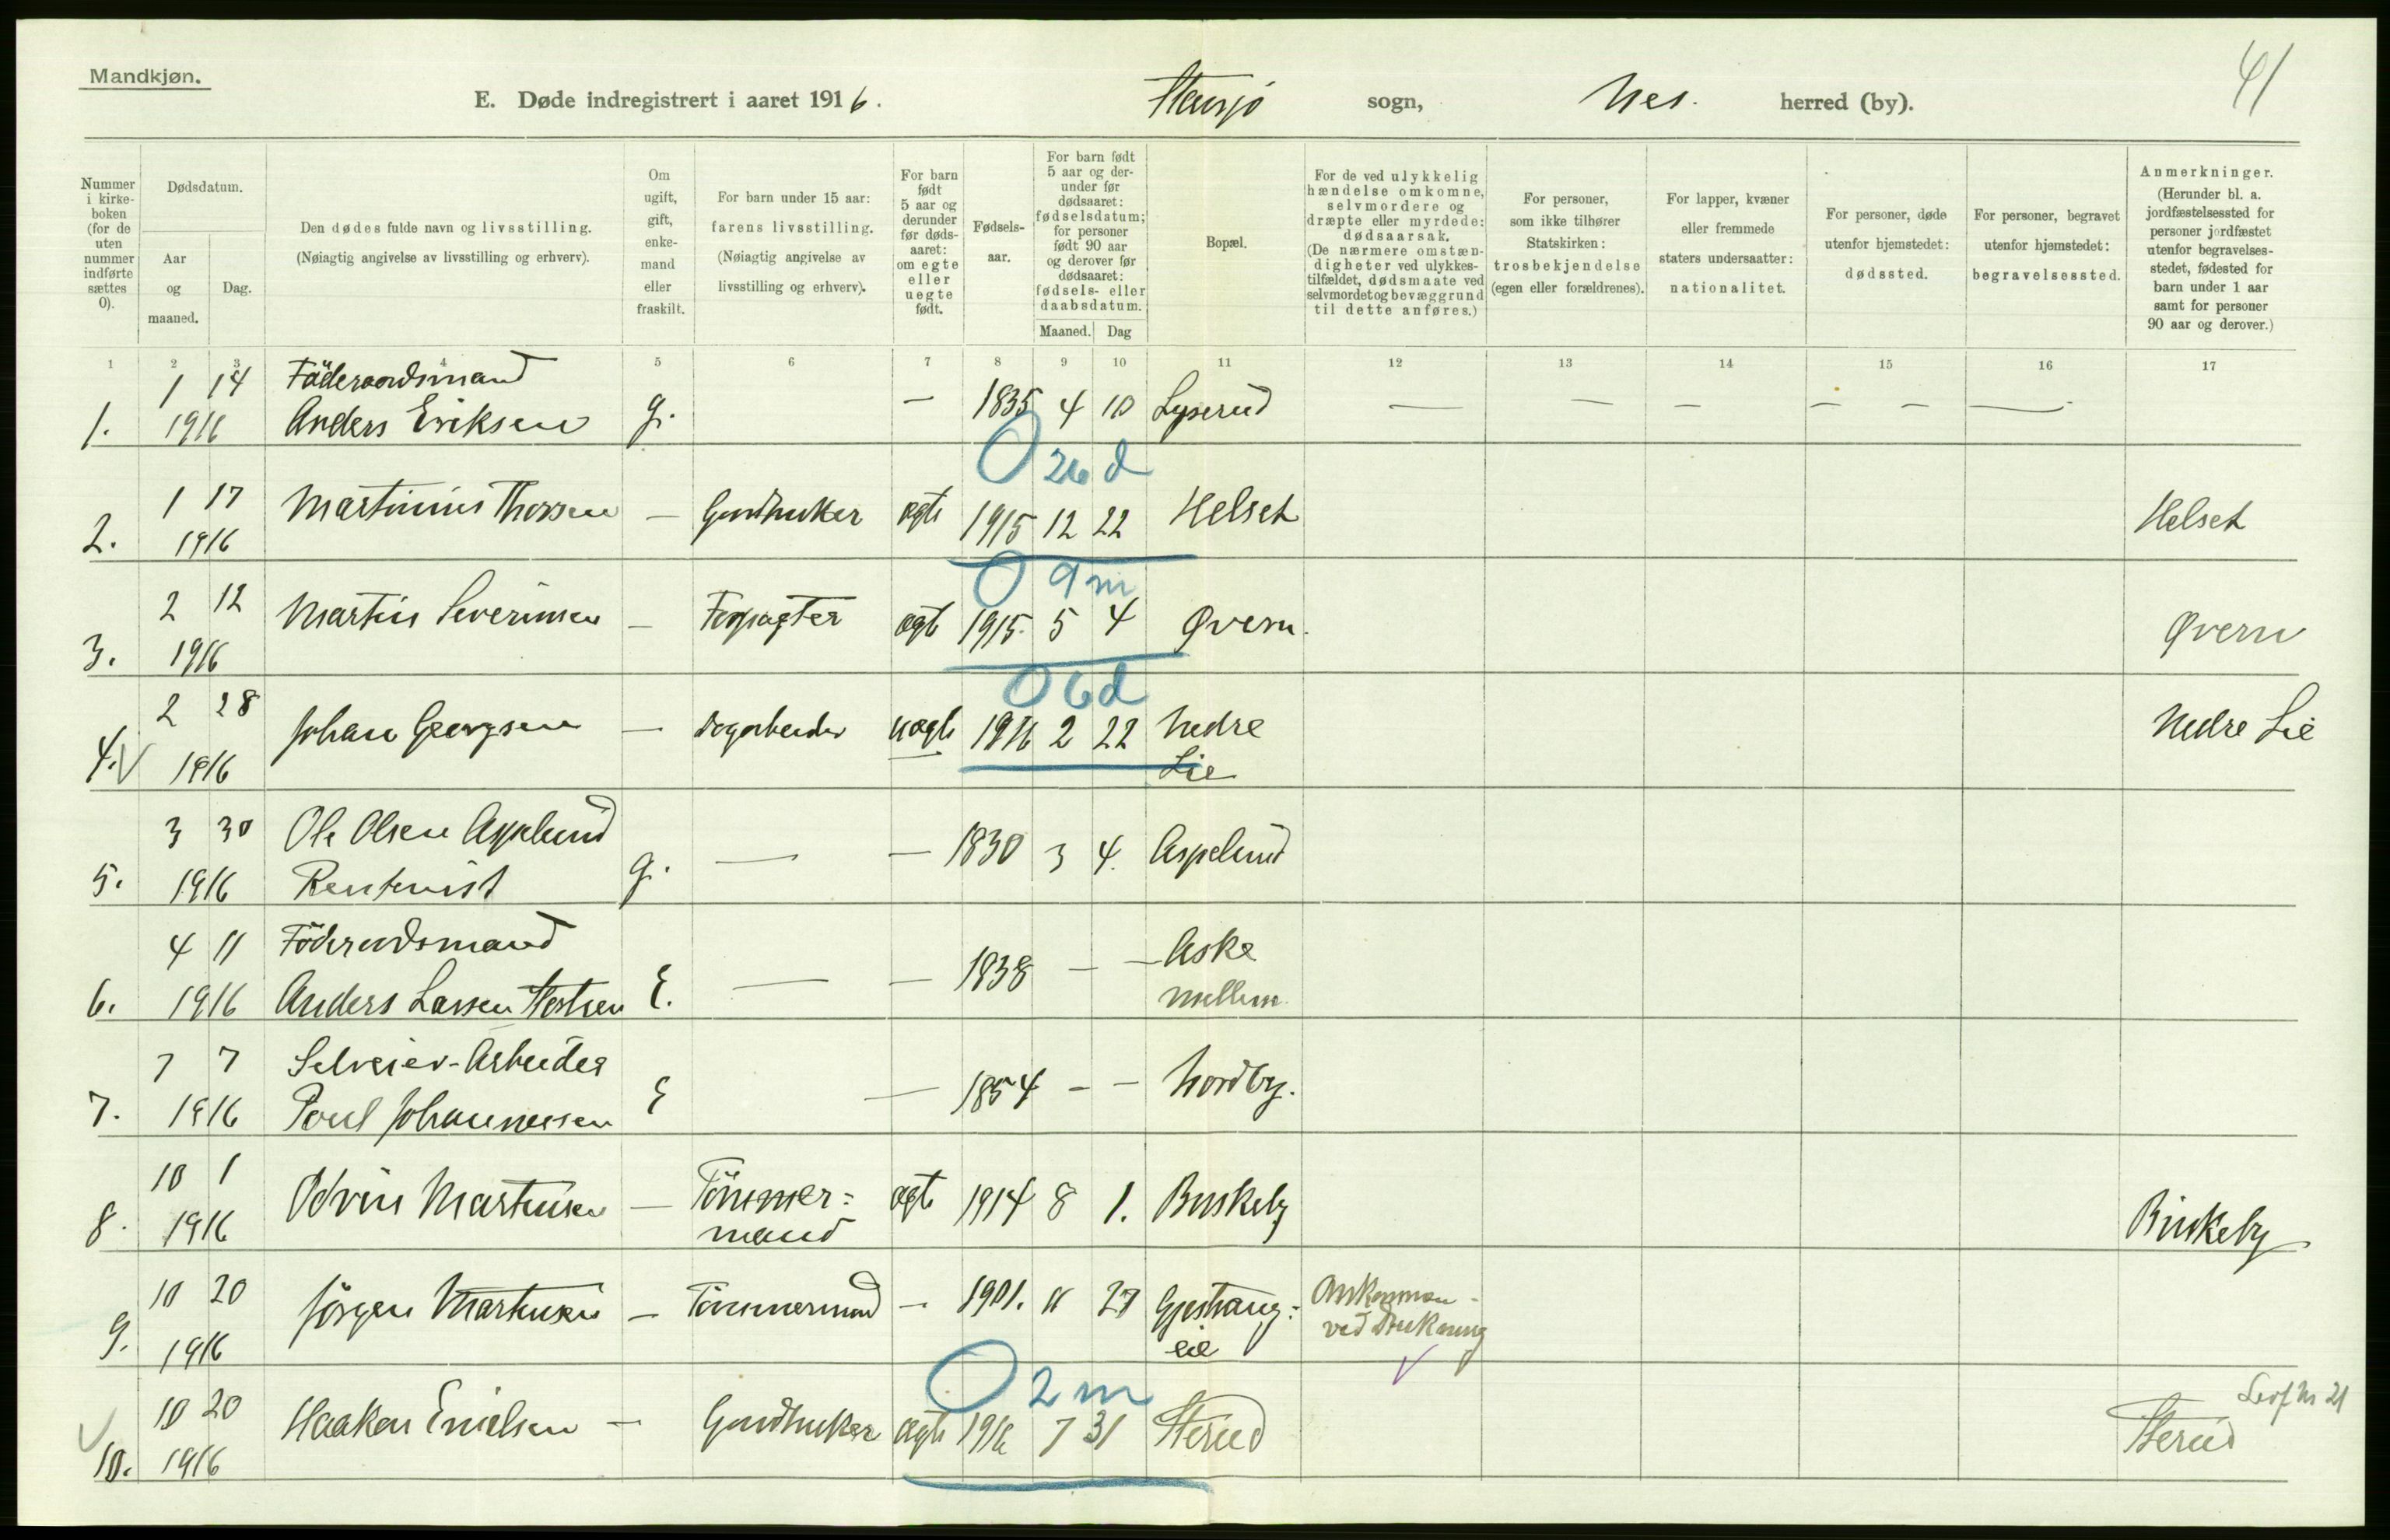 Mandkjøn.
41
E. Døde indregistrert i aaret 1916. Stavsjø sogn, Nes. herred (by).
Nummer i kirkeboken (for de uten nummer indførte sættes 0).
Dødsdatum.
Aar og maaned.
Dag.
Den dødes fulde navn og livsstilling.
(Nøiagtig angivelse av livsstilling og erhverv).
Om ugift, gift, enkemand eller fraskilt.
For barn under 15 aar: farens livsstilling.
(Nøiagtig angivelse av livsstilling og erhverv).
For barn født 5 aar og derunder før dødsaaret: om egte eller uegte født.
Fødselsaar.
For barn født 5 aar og derunder før dødsaaret: fødselsdatum; for personer født 90 aar og derover før dødsaaret: fødsels- eller daabsdatum.
Maaned. Dag
Bopæl.
For de ved ulykkelig hændelse omkomne, selvmordere og dræpte eller myrdede: dødsaarsak.
(De nærmere omstændigheter ved ulykkestilfældet, dødsmaate ved selvmordet og bevæggrund til dette anføres.)
For personer, som ikke tilhører Statskirken: trosbekjendelse (egen eller forældrenes).
For lapper, kvæner eller fremmede staters undersaatter: nationalitet.
For personer, døde utenfor hjemstedet: dødssted.
For personer, begravet utenfor hjemstedet: begravelsessted.
Anmerkninger.
(Herunder bl. a. jordfæstelsessted for personer jordfæstet utenfor begravelsesstedet, fødested for barn under 1 aar samt for personer 90 aar og derover.)
1 2 3 4 5 6 7 8 9 10 11 12 13 14 15 16 17
1 14 Föderaadsmand
1. 1916 Anders Eriksen g. — 1835 4 10 Lyserud — — — — — —
0 26 d
1 17 Martinius Thorsen — Gardbruker ægte 1915 12 22 Helset Helset
2. 1916
0 9 m
2 12 Martin Severinsen — Forpagter ægte 1915. 5 4 Øvern. Øvern
3. 1916
0 6 d
2 28 Johan Georgsen — Dagarbeider uægte 1916 2 22 Nedre Nedre Lie
4. V 1916 Lie
3 30 Ole Olsen Aspelund
5. 1916 Rentenist g. — — 1830 3 4. Aspelund
4 11 Föderaadsmand
6. 1916 Anders Larsen E. — — 1838 — — Aske
mellem.
7 7 Selveier-Arbeider
7. 1916 Poul Johannessen E — 1854 — — Nordby.
10 1 Odvin Martinsen — Tömmer= ægte 1914 8 1. Buskeby Buskeby
8. 1916 mand
10 20 Jörgen Martinsen — Tömmermand — 1901. 11 27 Gjestvang= Omkommen
9. 1916 eie ved Drukning
V
0 2 m
10 20 Haakon Emilsen — Gardbruker ægte 1916 7 31 Sterud Sterud
10. 1916